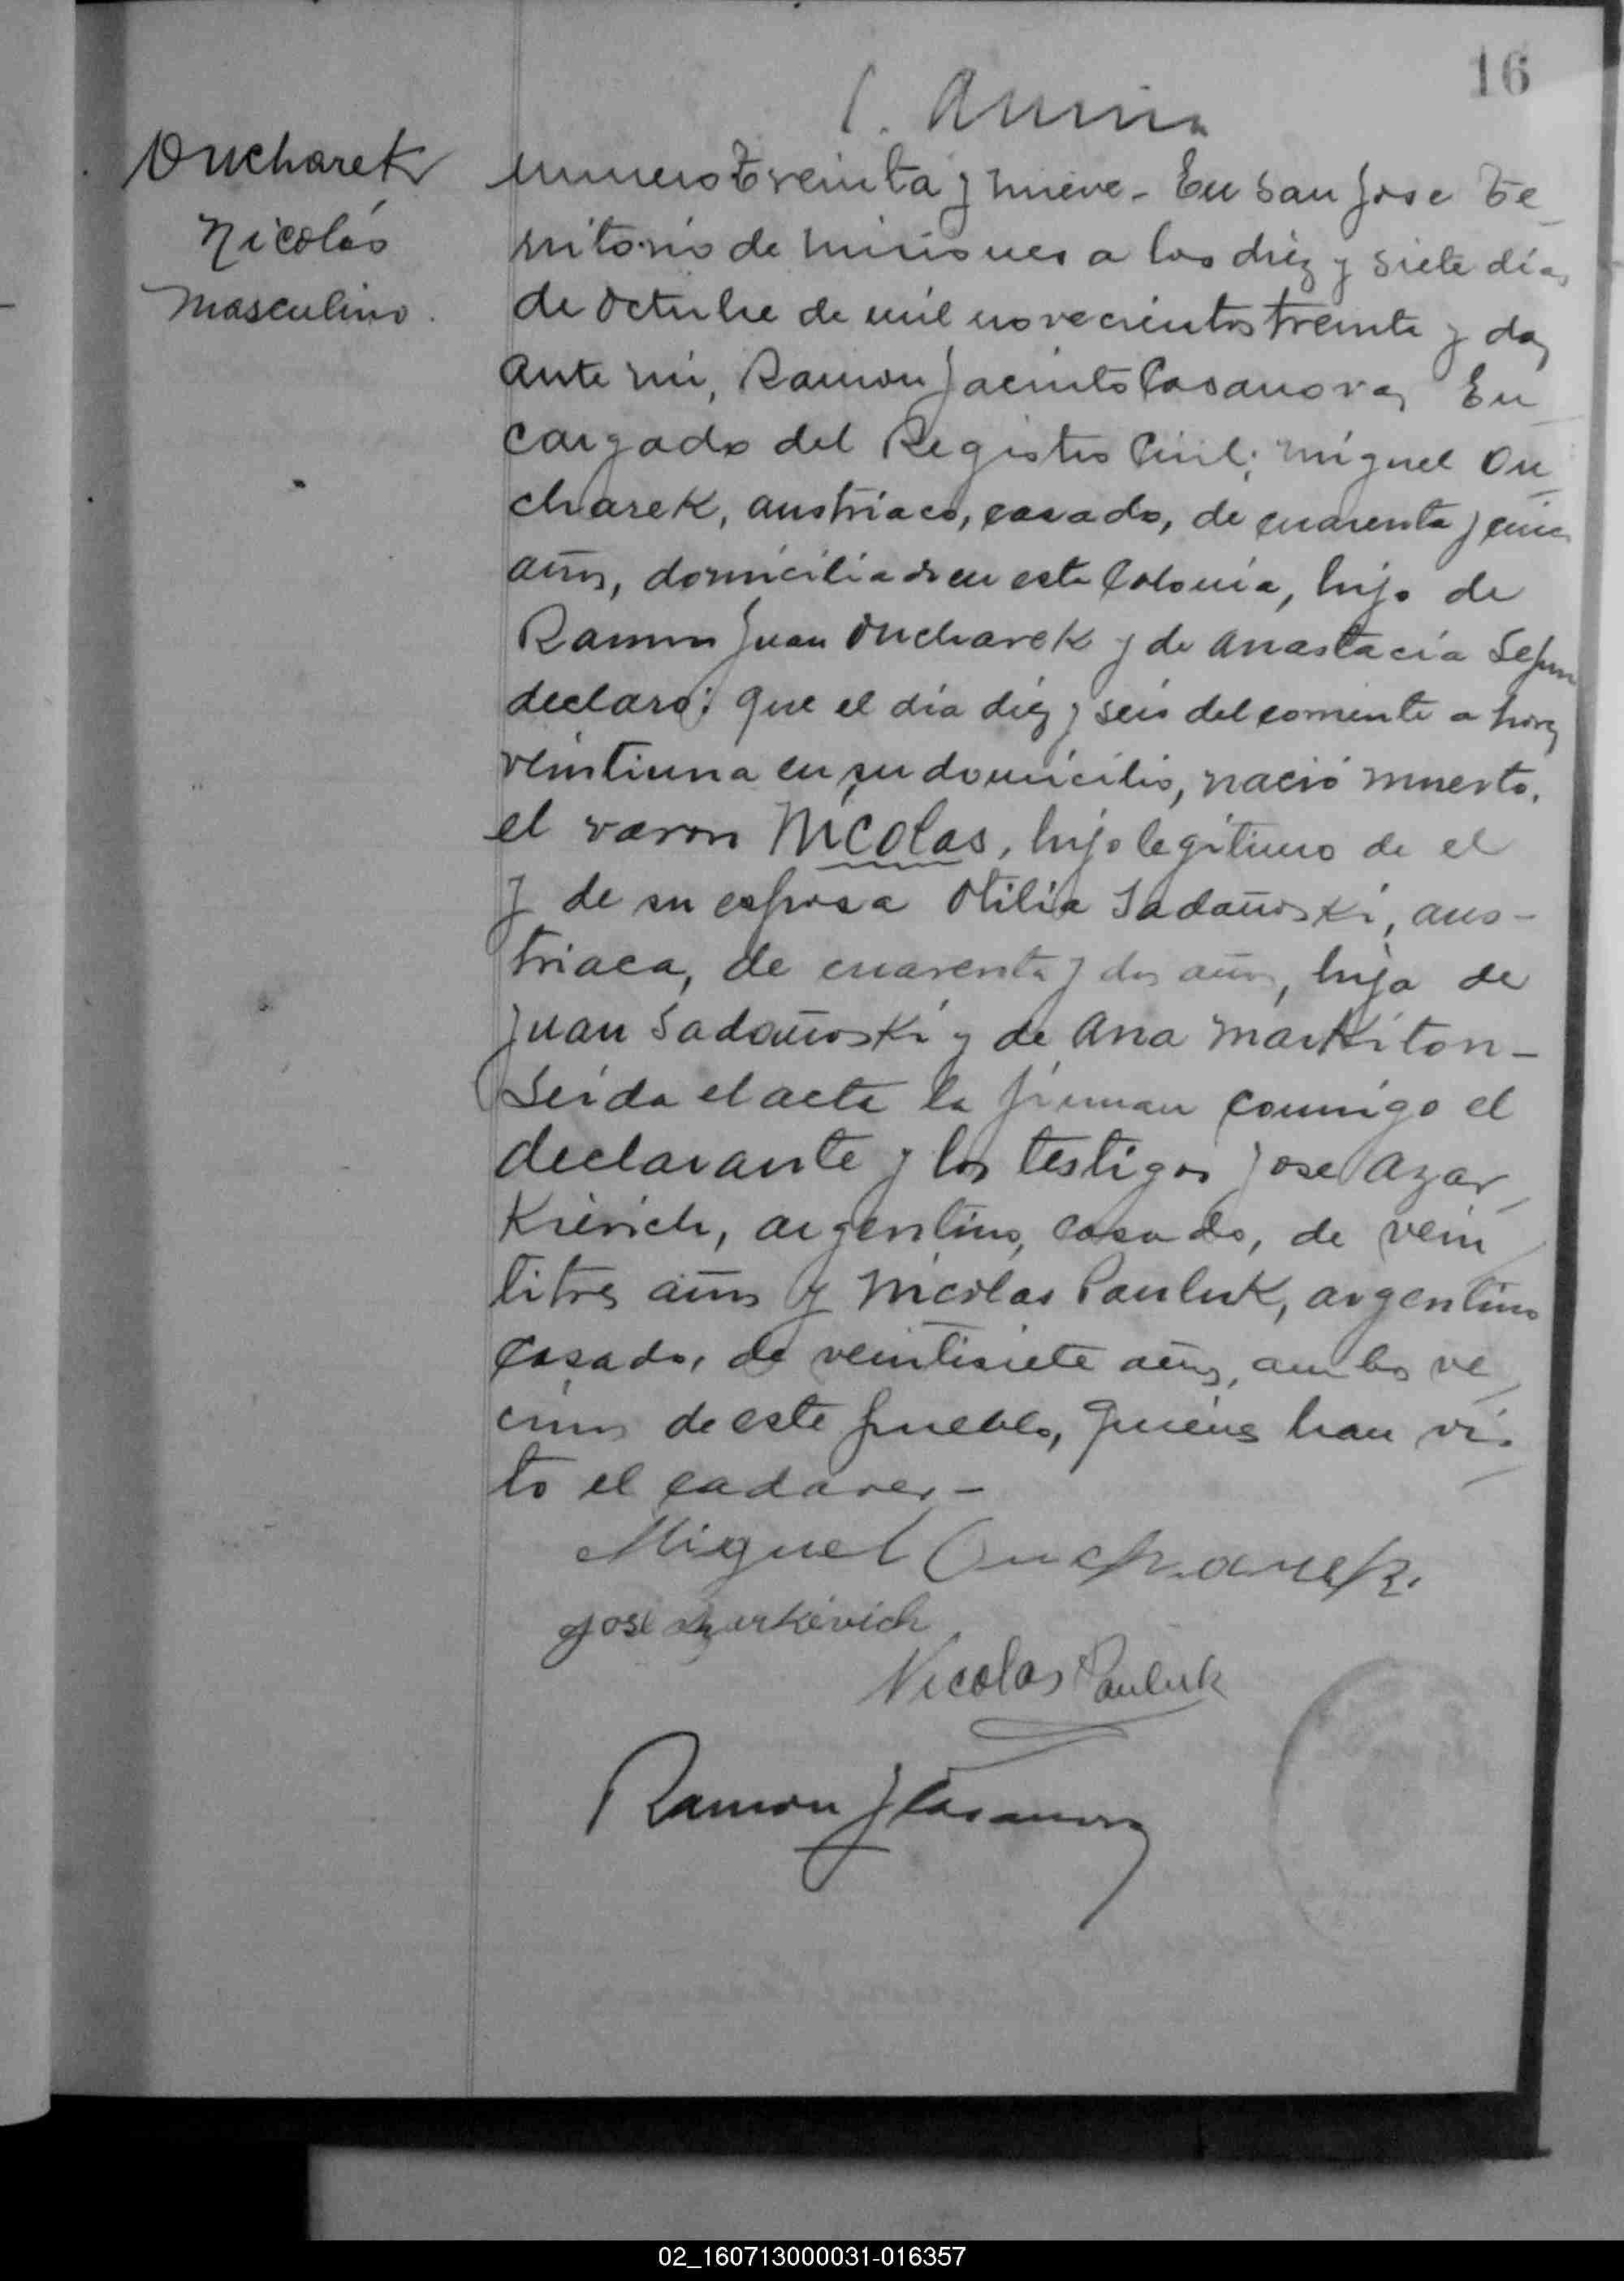 16
Oucharek
Nicolás
masculino.
numero treinta y nueve - En San Jose Te-
rritorio de Misiones a los diez y siete dias
de Octubre de mil novecientos treinta y dos
ante mi, Ramon Jacinto Casanova, En
cargado del Registro Civil; Miguel Ou
charek, austriaco, casado, de cuarenta y cinco
años, domiciliado en esta Colonia, hijo de
Ramon Juan Oucharek y de Anastacia
declaró: que el dia diez y seis del corriente a horas
veintiuna en su domicilio, nació muerto.
el varon Nicolas, hijo legitimo de el
y de su esposa Otilia Sadañoski, aus-
triaca, de cuarenta y dos años, hija de
Juan Sadañoski y de Ana Markiton -
Leida el acta la firman conmigo el
declarante y los testigos Jose Azar
Kievich, argentino, casado, de vein
titres años y Nicolas Pauluk, argentino
casado, de veintisiete años, ambos ve
cinos de este pueblo, quienes han vis
to el cadaver -
Miguel Oucharek.
José Azarkievich
Nicolas Pauluk
Ramon J Casanova
02_160713000031-016357